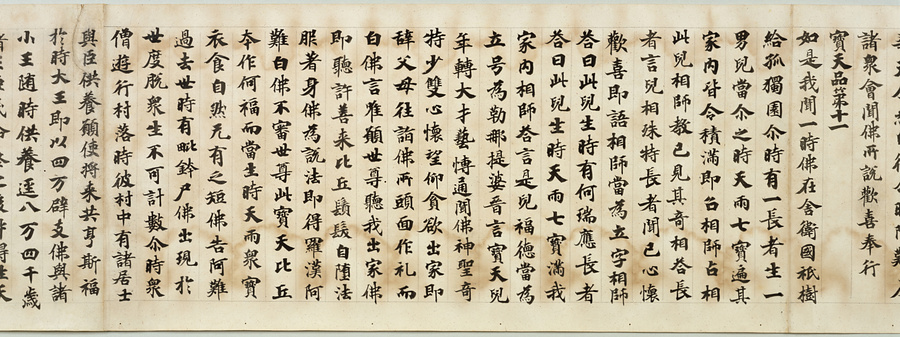 諸衆會聞佛所說歡喜奉行
寶天品第十一
如是我聞一時佛在舍衛國祇樹
給孤獨園尒時有一長者生一
男兒當尒之時天雨七寶遍其
家內皆令積滿即召相師占相
此兒相師教已見其奇相荅長
者言兒相殊特長者聞已心懷
歡喜即語相師當為立字相師
荅曰此兒生時有何瑞應長者
荅曰此兒生時天雨七寶滿我
家內相師荅言是兒福德當為
立号為勒那提婆晉言寶天兒
年轉大才藝博通聞佛神聖奇
特少雙心懷望仰貪欲出家即
辞父母往詣佛所頭面作礼而
白佛言唯願世尊聽我出家佛
即聽許善来比丘鬚髮自墮法
服著身佛為說法即得羅漢阿
難白佛不審世尊此寶天比丘
本作何福而當生時天雨衆寶
衣食自然无有之短佛告阿難
過去世時有毗鉢尸佛出現於
世度脫衆生不可計數尒時衆
僧遊行村落時彼村中有諸居士
與臣供養願使將来共享斯福
於時大王即以四方辟支佛與諸
小王随時供養逕八万四千歲